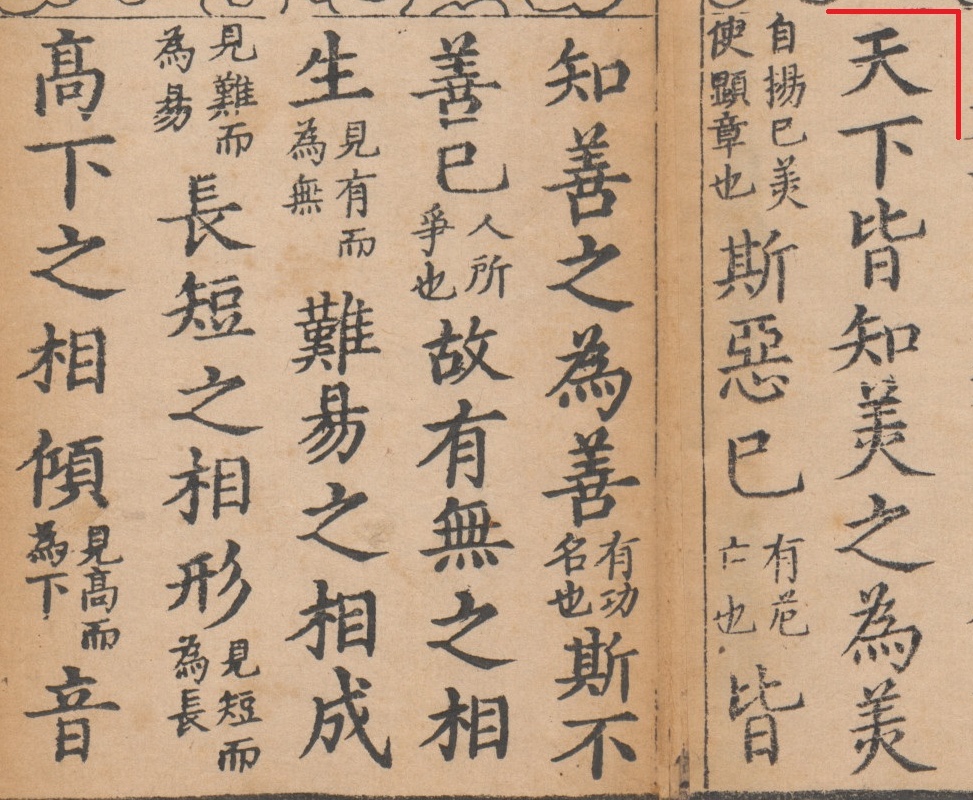 天下皆知羙之為羙
自揚巳羙使顯章也斯惡巳有危亡也皆
知善之為善有功名也斯不
善巳人所爭也故有無之相
生見有而為無難易之相成
見難而為易長短之相形見短而為長
髙下之相傾見髙而為下音